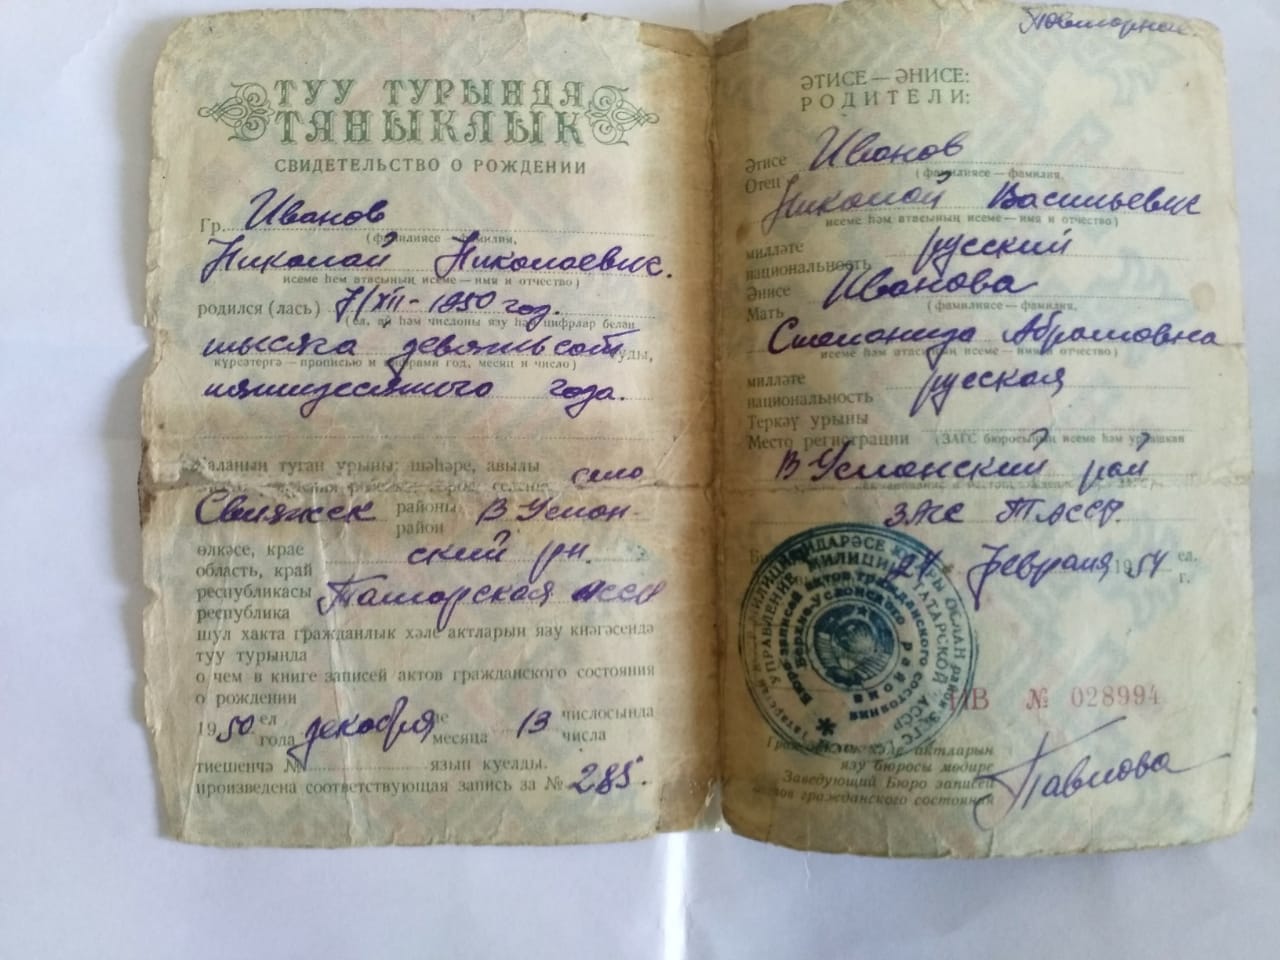 ТУУ ТУРЫНДА
ТАНЫКЛЫК
СВИДЕТЕЛЬСТВО О РОЖДЕНИИ
Гр. Иванов
(фамилиясе — фамилия,
Николай Николаевич.
исеме һәм атасының исеме — имя и отчество)
родился (лась) 7/XII - 1950 год.
(ел, ай һәм числоны язу һәм цифрлар белән
тысяча девятьсот
күрсәтергә — прописью и цифрами год, месяц и число)
пятидесятого года.
Баланың туган урыны: шәһәре, авылы
село
Свияжск районы
район В Услон-
өлкәсе, крае
область, край ский рн.
республикасы
республика Татарская АССР
шул хакта гражданлык хәле актларын язу кнәгәсендә
туу турында
о чем в книге записей актов гражданского состояния
о рождении
1950 ел
года декабря
месяца 13 числосында
числа
тиешенчә № язып куелды.
произведена соответствующая запись за № 285.
Повторное.
ӘТИСЕ — ӘНИСЕ:
РОДИТЕЛИ:
Әтисе
Отец Иванов
(фамилиясе — фамилия,
Николай Васильевич
исеме һәм атасының исеме — имя и отчество)
милләте
национальность русский
Әнисе
Мать Иванова
(фамилиясе — фамилия,
Степанида Абрамовна
исеме һәм атасының исеме — имя и отчество)
милләте
национальность русская
Теркәү урыны
Место регистрации (ЗАГС бюросының исеме һәм урнашкан
В Услонский рай
ЗАГС ТАССР.
24 февраля 1954 ел.
г.
УПРАВЛЕНИЕ МИЛИЦИИ ТАТАРСКОЙ АССР
Бюро записей актов гражданского состояния
Верхне-Услонского района
ИВ № 028994
Гражданлык хәле актларын
язу бюросы мөдире
Заведующий Бюро записей
актов гражданского состояния
Павлова